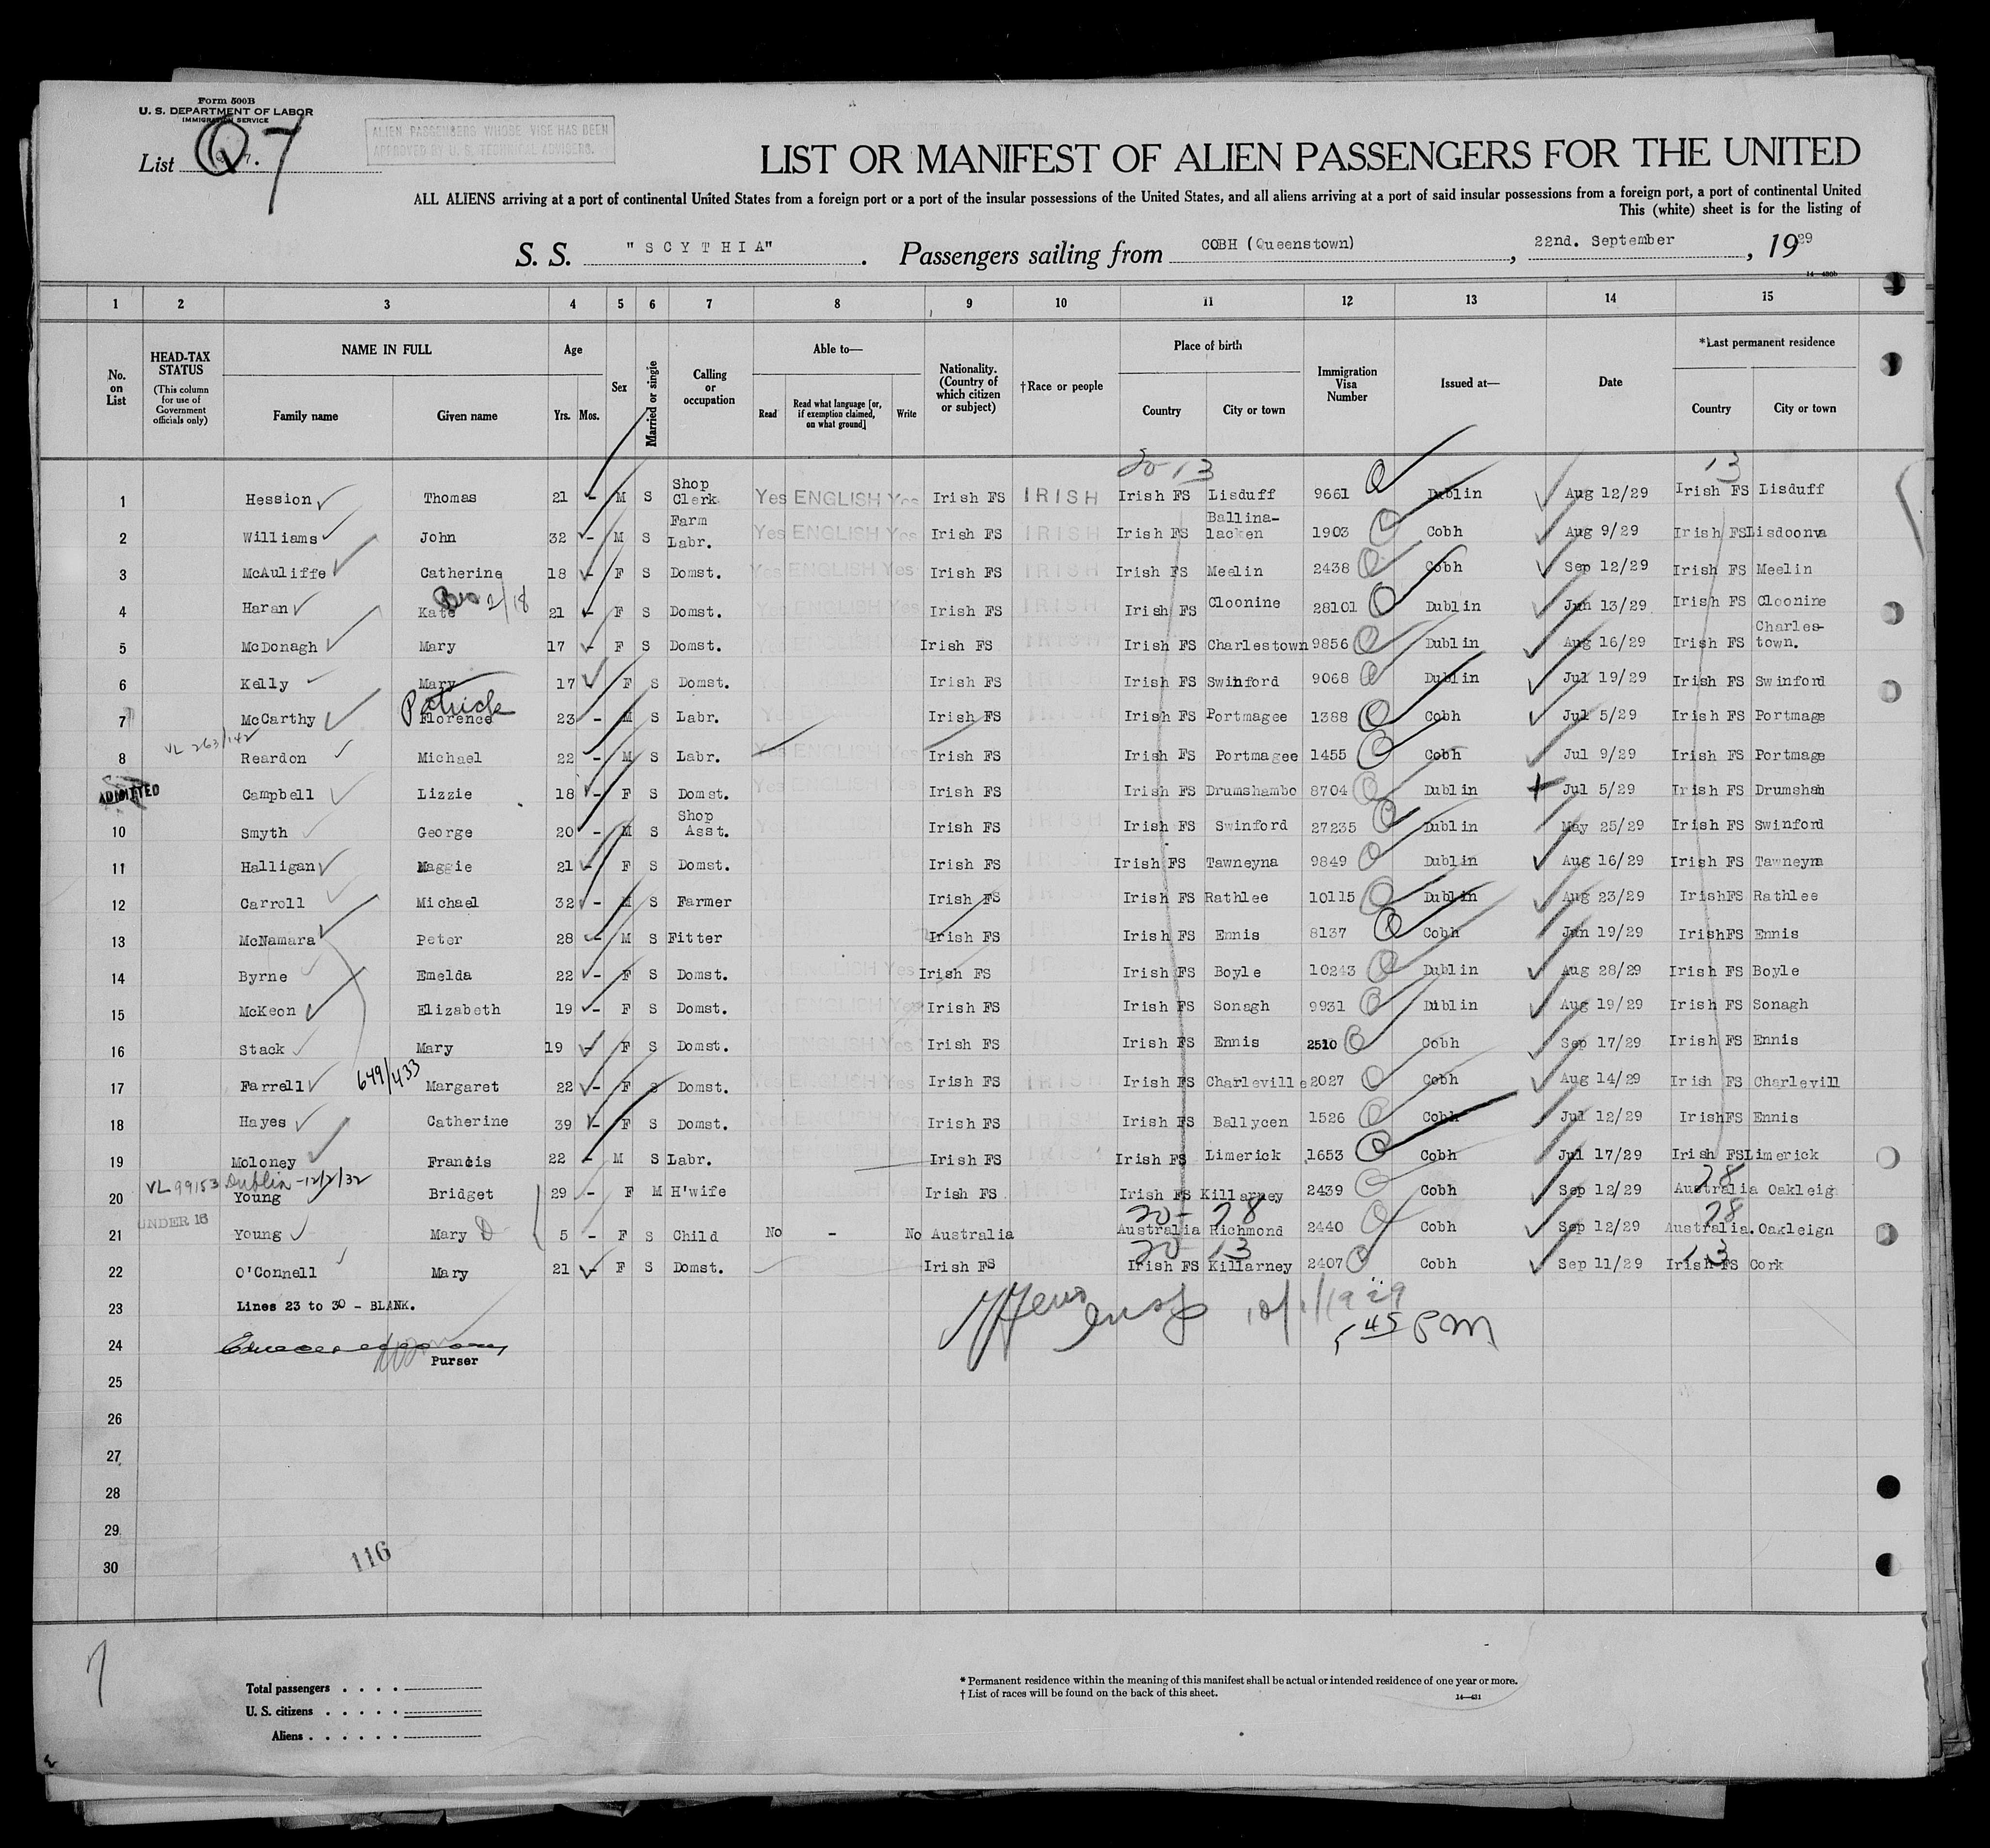 Form 500B
U. S. DEPARTMENT OF LABOR
IMMIGRATION SERVICE
List 7. Q 7
ALIEN PASSENGERS WHOSE VISE HAS BEEN
APPROVED BY U. S. TECHNICAL ADVISERS.
LIST OR MANIFEST OF ALIEN PASSENGERS FOR THE UNITED
ALL ALIENS arriving at a port of continental United States from a foreign port or a port of the insular possessions of the United States, and all aliens arriving at a port of said insular possessions from a foreign port, a port of continental United
This (white) sheet is for the listing of
S. S. "SCYTHIA". Passengers sailing from COBH (Queenstown), 22nd. September, 1929
14—430b
1 2 3 4 5 6 7 8 9 10 11 12 13 14 15
No. on List
HEAD-TAX STATUS (This column for use of Government officials only)
NAME IN FULL
Family name Given name
Age
Yrs. Mos.
Sex
Married or single
Calling or occupation
Able to—
Read Read what language [or, if exemption claimed, on what ground] Write
Nationality. (Country of which citizen or subject)
†Race or people
Place of birth
Country City or town
Immigration Visa Number
Issued at—
Date
*Last permanent residence
Country City or town
20-13 13
1 Hession Thomas 21 - M S Shop Clerk Yes ENGLISH Yes Irish FS IRISH Irish FS Lisduff 9661 Dublin Aug 12/29 Irish FS Lisduff
2 Williams John 32 - M S Farm Labr. Yes ENGLISH Yes Irish FS IRISH Irish FS Ballina-lacken 1903 Cobh Aug 9/29 Irish FS Lisdoonva
3 McAuliffe Catherine 18 - F S Domst. Yes ENGLISH Yes Irish FS IRISH Irish FS Meelin 2438 Cobh Sep 12/29 Irish FS Meelin
4 Haran Kate 2/18 21 - F S Domst. Yes ENGLISH Yes Irish FS IRISH Irish FS Cloonine 28101 Dublin Jun 13/29 Irish FS Cloonine
5 McDonagh Mary 17 - F S Domst. Yes ENGLISH Yes Irish FS IRISH Irish FS Charlestown 9856 Dublin Aug 16/29 Irish FS Charles-town.
6 Kelly Mary 17 F S Domst. Irish FS IRISH Irish FS Swinford 9068 Dublin Jul 19/29 Irish FS Swinford
7 McCarthy Patrick Florence 23 - M S Labr. Irish FS IRISH Irish FS Portmagee 1388 Cobh Jul 5/29 Irish FS Portmage
VL 263/142
8 Reardon Michael 22 - M S Labr. Yes ENGLISH Yes Irish FS IRISH Irish FS Portmagee 1455 Cobh Jul 9/29 Irish FS Portmage
ADMITTED Campbell Lizzie 18 - F S Domst. Yes ENGLISH Yes Irish FS IRISH Irish FS Drumshambo 8704 Dublin Jul 5/29 Irish FS Drumshan
10 Smyth George 20 - M S Shop Asst. Irish FS IRISH Irish FS Swinford 27235 Dublin May 25/29 Irish FS Swinford
11 Halligan Maggie 21 - F S Domst. Irish FS Irish FS Tawneyna 9849 Dublin Aug 16/29 Irish FS Tawneyna
12 Carroll Michael 32 - M S Farmer Irish FS IRISH Irish FS Rathlee 10115 Dublin Aug 23/29 IrishFS Rathlee
13 McNamara Peter 28 - M S Fitter Irish FS Irish FS Ennis 8137 Cobh Jun 19/29 IrishFS Ennis
14 Byrne Emelda 22 - F S Domst. ENGLISH Yes Irish FS Irish FS Boyle 10243 Dublin Aug 28/29 Irish FS Boyle
15 McKeon Elizabeth 19 - F S Domst. Yes ENGLISH Yes Irish FS Irish FS Sonagh 9931 Dublin Aug 19/29 Irish FS Sonagh
16 Stack Mary 19 - F S Domst. ENGLISH Yes Irish FS Irish FS Ennis 2510 Cobh Sep 17/29 Irish FS Ennis
17 Farrell 649/433 Margaret 22 - F S Domst. Yes ENGLISH Yes Irish FS IRISH Irish FS Charleville 2027 Cobh Aug 14/29 Irish FS Charlevill
18 Hayes Catherine 39 - F S Domst. Yes ENGLISH Yes Irish FS IRISH Irish FS Ballycen 1526 Cobh Jul 12/29 IrishFS Ennis
19 Moloney Francis 22 - M S Labr. Irish FS IRISH Irish FS Limerick 1653 Cobh Jul 17/29 Irish FS Limerick
VL 99153 Dublin -12/2/32 28
20 Young Bridget 29 - F M H'wife Irish FS Irish FS Killarney 2439 Cobh Sep 12/29 Australia Oakleig
UNDER 16 20- 28 28
21 Young Mary D 5 - F S Child No - No Australia Australia Richmond 2440 Cobh Sep 12/29 Australia. Oakleigh
20 13 13
22 O'Connell Mary 21 - F S Domst. Irish FS Irish FS Killarney 2407 Cobh Sep 11/29 Irish FS Cork
23 Lines 23 to 30 - BLANK.
10/1/1929
5 45 PM
24
Purser
25
26
27
28
29
30
116
7
Total passengers . . . .
U. S. citizens . . . . .
Aliens . . . . . .
* Permanent residence within the meaning of this manifest shall be actual or intended residence of one year or more.
† List of races will be found on the back of this sheet.
14—431